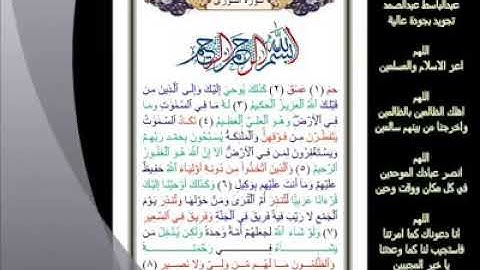 سورة الشورى
بسم الله الرحمن الرحيم
حم (١) عسق (٢) كذلك يوحي إليك وإلى الذين من
قبلك الله العزيز الحكيم (٣) له ما في السموت وما
في الأرض وهو العلي العظيم (٤) تكاد السموت
يتفطرن من فوقهن والملئكة يسبحون بحمد ربهم
ويستغفرون لمن في الأرض ألا إن الله هو الغفور
الرحيم (٥) والذين اتخذوا من دونه أولياء الله حفيظ
عليهم وما أنت عليهم بوكيل (٦) وكذلك أوحينا إليك
قرءانا عربيا لتنذر أم القرى ومن حولها وتنذر يوم
الجمع لا ريب فيه فريق في الجنة وفريق في السعير
(٧) ولو شاء الله لجعلهم أمة وحدة ولكن يدخل من
يشاء في رحمته
والظلمون ما لهم من ولي ولا نصير (٨)
عبدالباسط عبدالصمد
تجويد بجودة عالية
اللهم
اعز الاسلام والمسلمين
اللهم
اهلك الظالمين بالظالمين
واخرجنا من بينهم سالمين
اللهم
انصر عبادك الموحدين
في كل مكان ووقت وحين
اللهم
انا دعوناك كما امرتنا
فاستجيب لنا كما وعدتنا
يا خير المجيبين